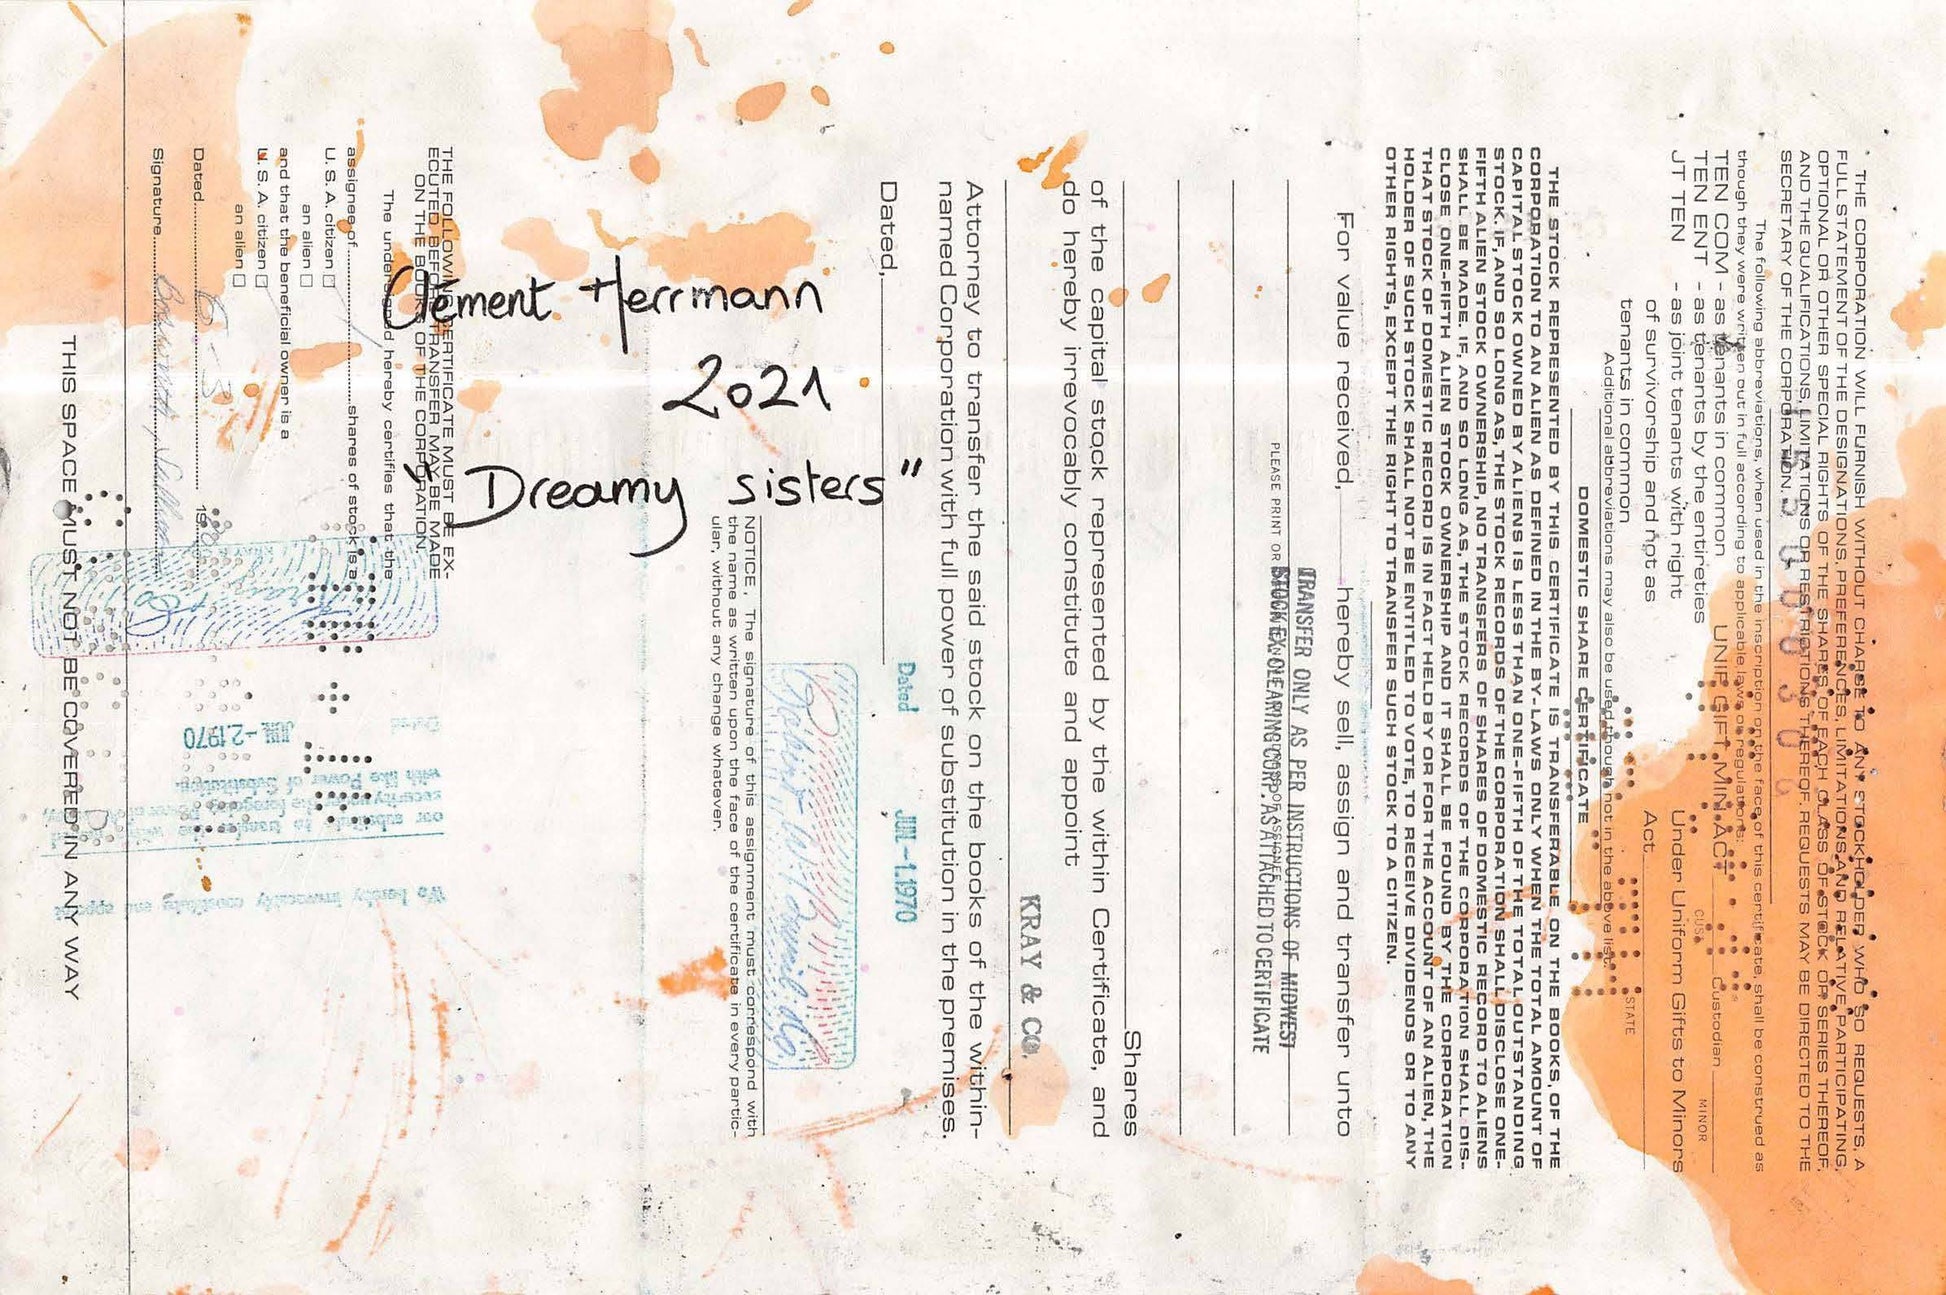 Clement Herrmann
2021
"Dreamy sisters"
THE CORPORATION WILL FURNISH WITHOUT CHARGE TO ANY STOCKHOLDER WHO SO REQUESTS, A
FULL STATEMENT OF THE DESIGNATIONS, PREFERENCES, LIMITATIONS AND RELATIVE, PARTICIPATING,
OPTIONAL OR OTHER SPECIAL RIGHTS OF THE SHARES OF EACH CLASS OF STOCK OR SERIES THEREOF,
AND THE QUALIFICATIONS, LIMITATIONS OR RESTRICTIONS THEREOF. REQUESTS MAY BE DIRECTED TO THE
SECRETARY OF THE CORPORATION.
The following abbreviations, when used in the inscription on the face of this certificate, shall be construed as
though they were written out in full according to applicable laws or regulations:
TEN COM - as tenants in common
UNIF GIFT MIN ACT
CUST
Custodian
MINOR
TEN ENT - as tenants by the entireties
JT TEN - as joint tenants with right
of survivorship and not as
tenants in common
Under Uniform Gifts to Minors
Act
STATE
Additional abbreviations may also be used though not in the above list.
DOMESTIC SHARE CERTIFICATE
THE STOCK REPRESENTED BY THIS CERTIFICATE IS TRANSFERABLE ON THE BOOKS, OF THE
CORPORATION TO AN ALIEN AS DEFINED IN THE BY-LAWS ONLY WHEN THE TOTAL AMOUNT OF
CAPITAL STOCK OWNED BY ALIENS IS LESS THAN ONE-FIFTH OF THE TOTAL OUTSTANDING
STOCK. IF, AND SO LONG AS, THE STOCK RECORDS OF THE CORPORATION SHALL DISCLOSE ONE-
FIFTH ALIEN STOCK OWNERSHIP, NO TRANSFERS OF SHARES OF DOMESTIC RECORD TO ALIENS
SHALL BE MADE. IF, AND SO LONG AS, THE STOCK RECORDS OF THE CORPORATION SHALL DIS-
CLOSE ONE-FIFTH ALIEN STOCK OWNERSHIP AND IT SHALL BE FOUND BY THE CORPORATION
THAT STOCK OF DOMESTIC RECORD IS IN FACT HELD BY OR FOR THE ACCOUNT OF AN ALIEN, THE
HOLDER OF SUCH STOCK SHALL NOT BE ENTITLED TO VOTE, TO RECEIVE DIVIDENDS OR TO ANY
OTHER RIGHTS, EXCEPT THE RIGHT TO TRANSFER SUCH STOCK TO A CITIZEN.
For value received, hereby sell, assign and transfer unto
TRANSFER ONLY AS PER INSTRUCTIONS OF MIDWEST
STOCK EX. CLEARING CORP. AS ATTACHED TO CERTIFICATE
PLEASE PRINT OR
Shares
of the capital stock represented by the within Certificate, and
do hereby irrevocably constitute and appoint
KRAY & CO.
Attorney to transfer the said stock on the books of the within-
named Corporation with full power of substitution in the premises.
Dated,
Dated JUN -1.1970
NOTICE, The signature of this assignment must correspond with
the name as written upon the face of the certificate in every partic-
ular, without any change whatever.
THE FOLLOWING CERTIFICATE MUST BE EX-
ECUTED BEFORE TRANSFER MAY BE MADE
ON THE BOOKS OF THE CORPORATION.
The undersigned hereby certifies that the
assignee of shares of stock is a
U.S.A. citizen □
an alien □
and that the beneficial owner is a
U.S.A. citizen □
an alien □
Dated 19
Signature
We hereby irrevocably constitute and appoint
our substitute to transfer the within
security under the foregoing Power of Attorney
with like Power of Substitution.
Dated JUN -2.1970
THIS SPACE MUST NOT BE COVERED IN ANY WAY